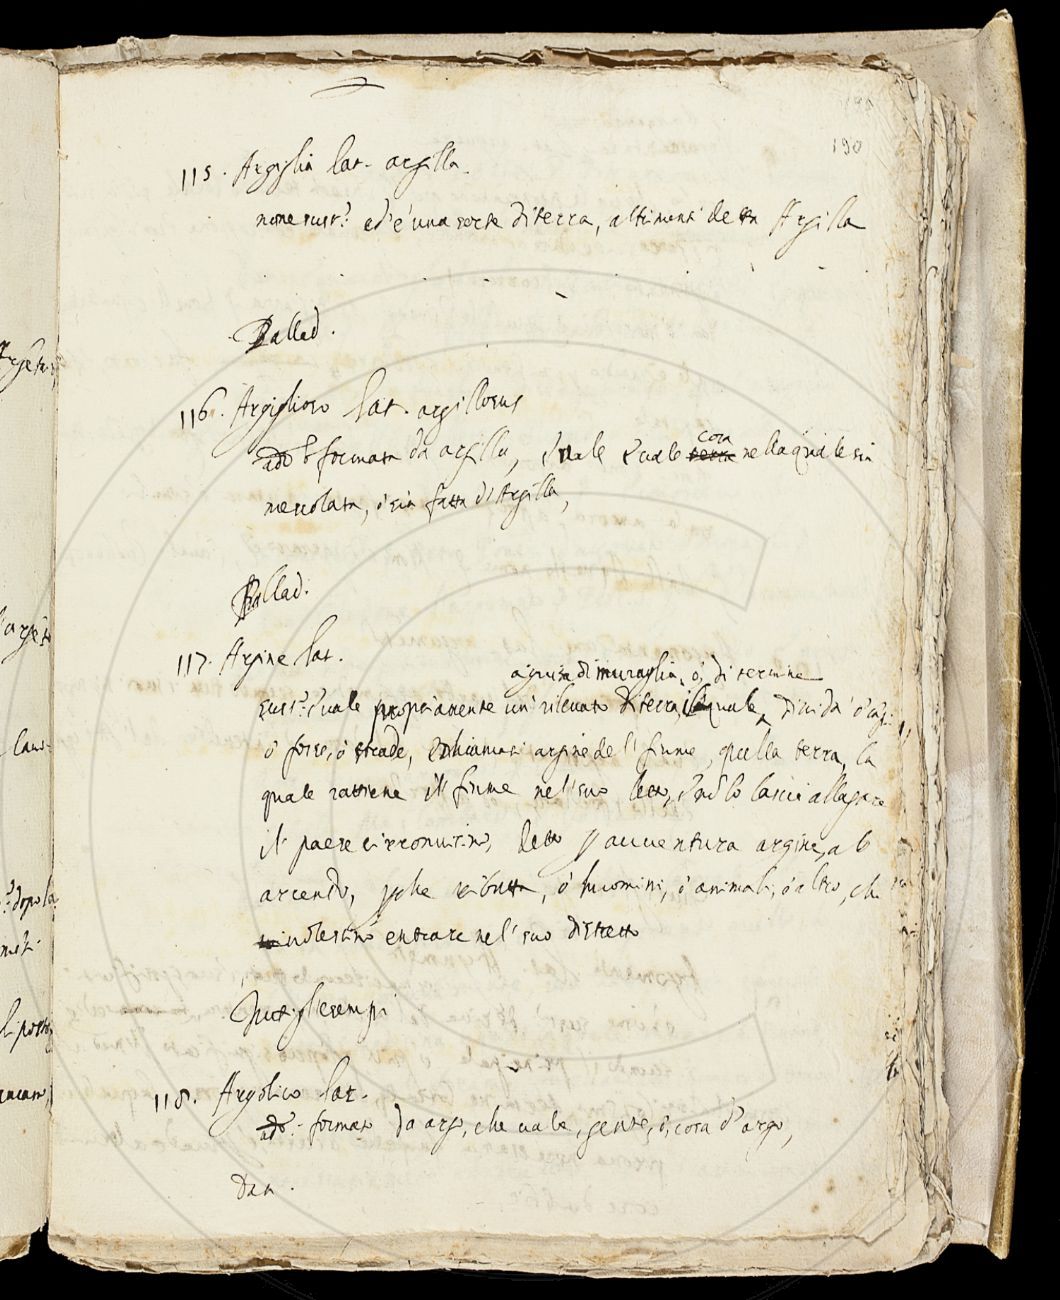 190
115. Argiglia lat. argilla.
nome sust.º ed è una sorte di terra, altrimenti detta Argilla
Pallad.
116. Argiglioso lat. argillosus
add.º formata da argilla, e vale cosa nella quale sia
mescolata, ò sia fatta di Argilla,
Pallad:
117. Argine lat.
à guisa di muraglia, ò, di termine
sust.º e vale propriamente un rilevato di terra, il quale divida ò
ò fosse, ò strade, e chiamasi argine del fiume, quella terra, la
quale rattiene il fiume nel suo letto, lascia allagare
il paese circonvicino, detto p avventura argine, ab
arcendo, pche ributta, ò huomini, ò animali, ò altro, che
entrare nel suo distretto
Tutti gl'esempi
118. Argolico lat.
add.º formato da argo, che vale, gente, ò, cosa d'argo,
Dan.